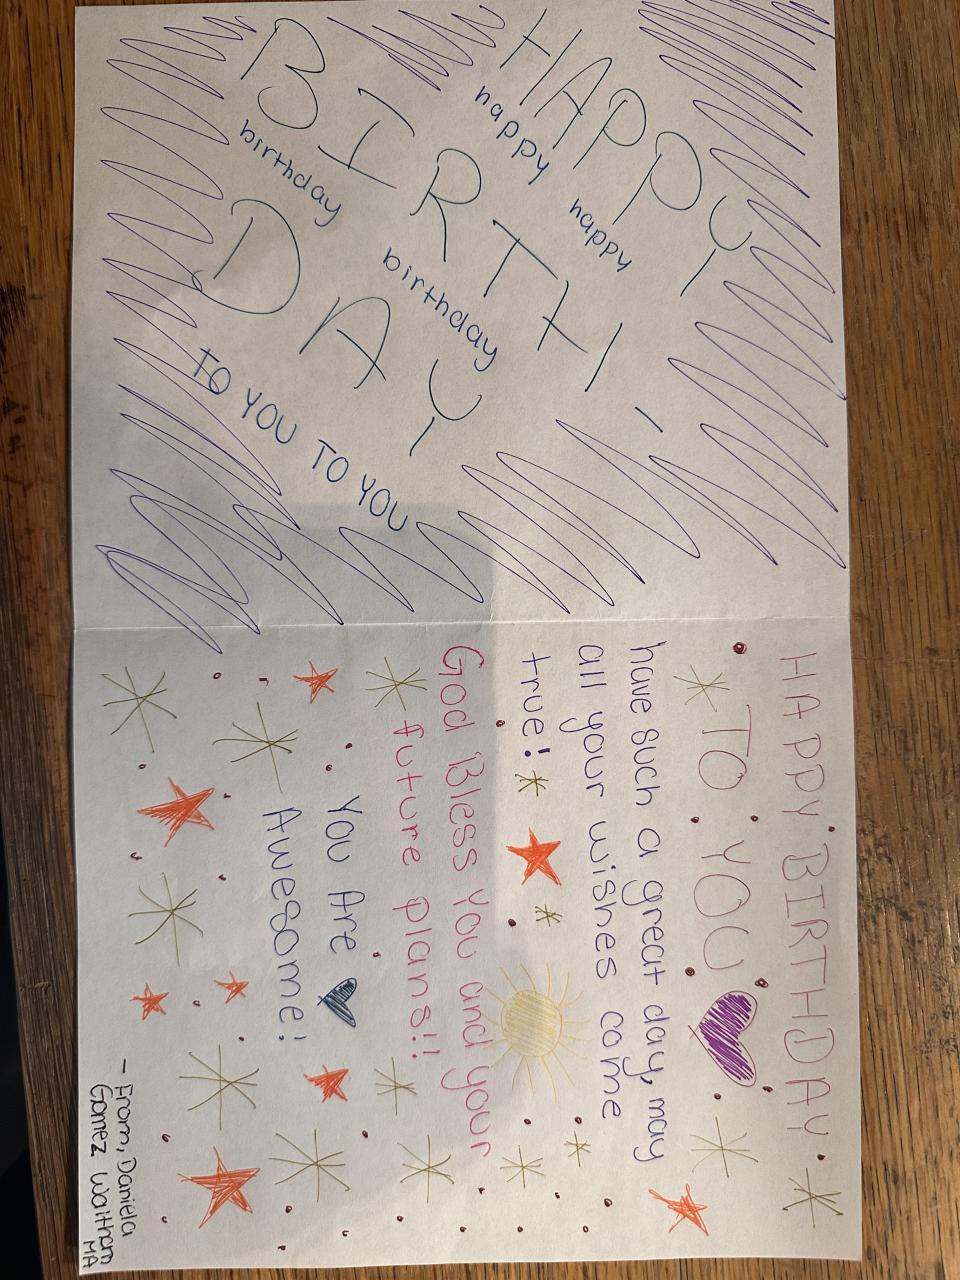 HAPPY
happy happy
BIRTH-
birthday birthday
DAY
TO YOU TO YOU
HAPPY BIRTHDAY
TO YOU
have such a great day, may
all your wishes come
true!
God Bless You and your
future plans!!
You Are
Awesome!
- From, Daniela
Gomez Waltham
MA